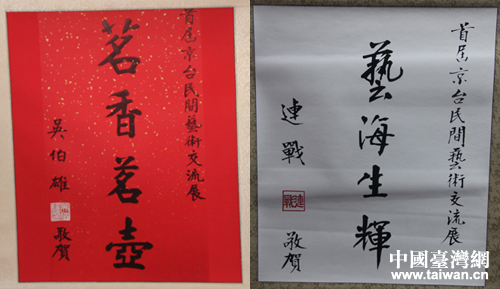 首届京台民間藝術交流展
茗香茗壺
吳伯雄
敬賀
首届京台民間藝術交流展
藝海生輝
連戰
連戰
敬賀
中國臺灣網
www.taiwan.cn